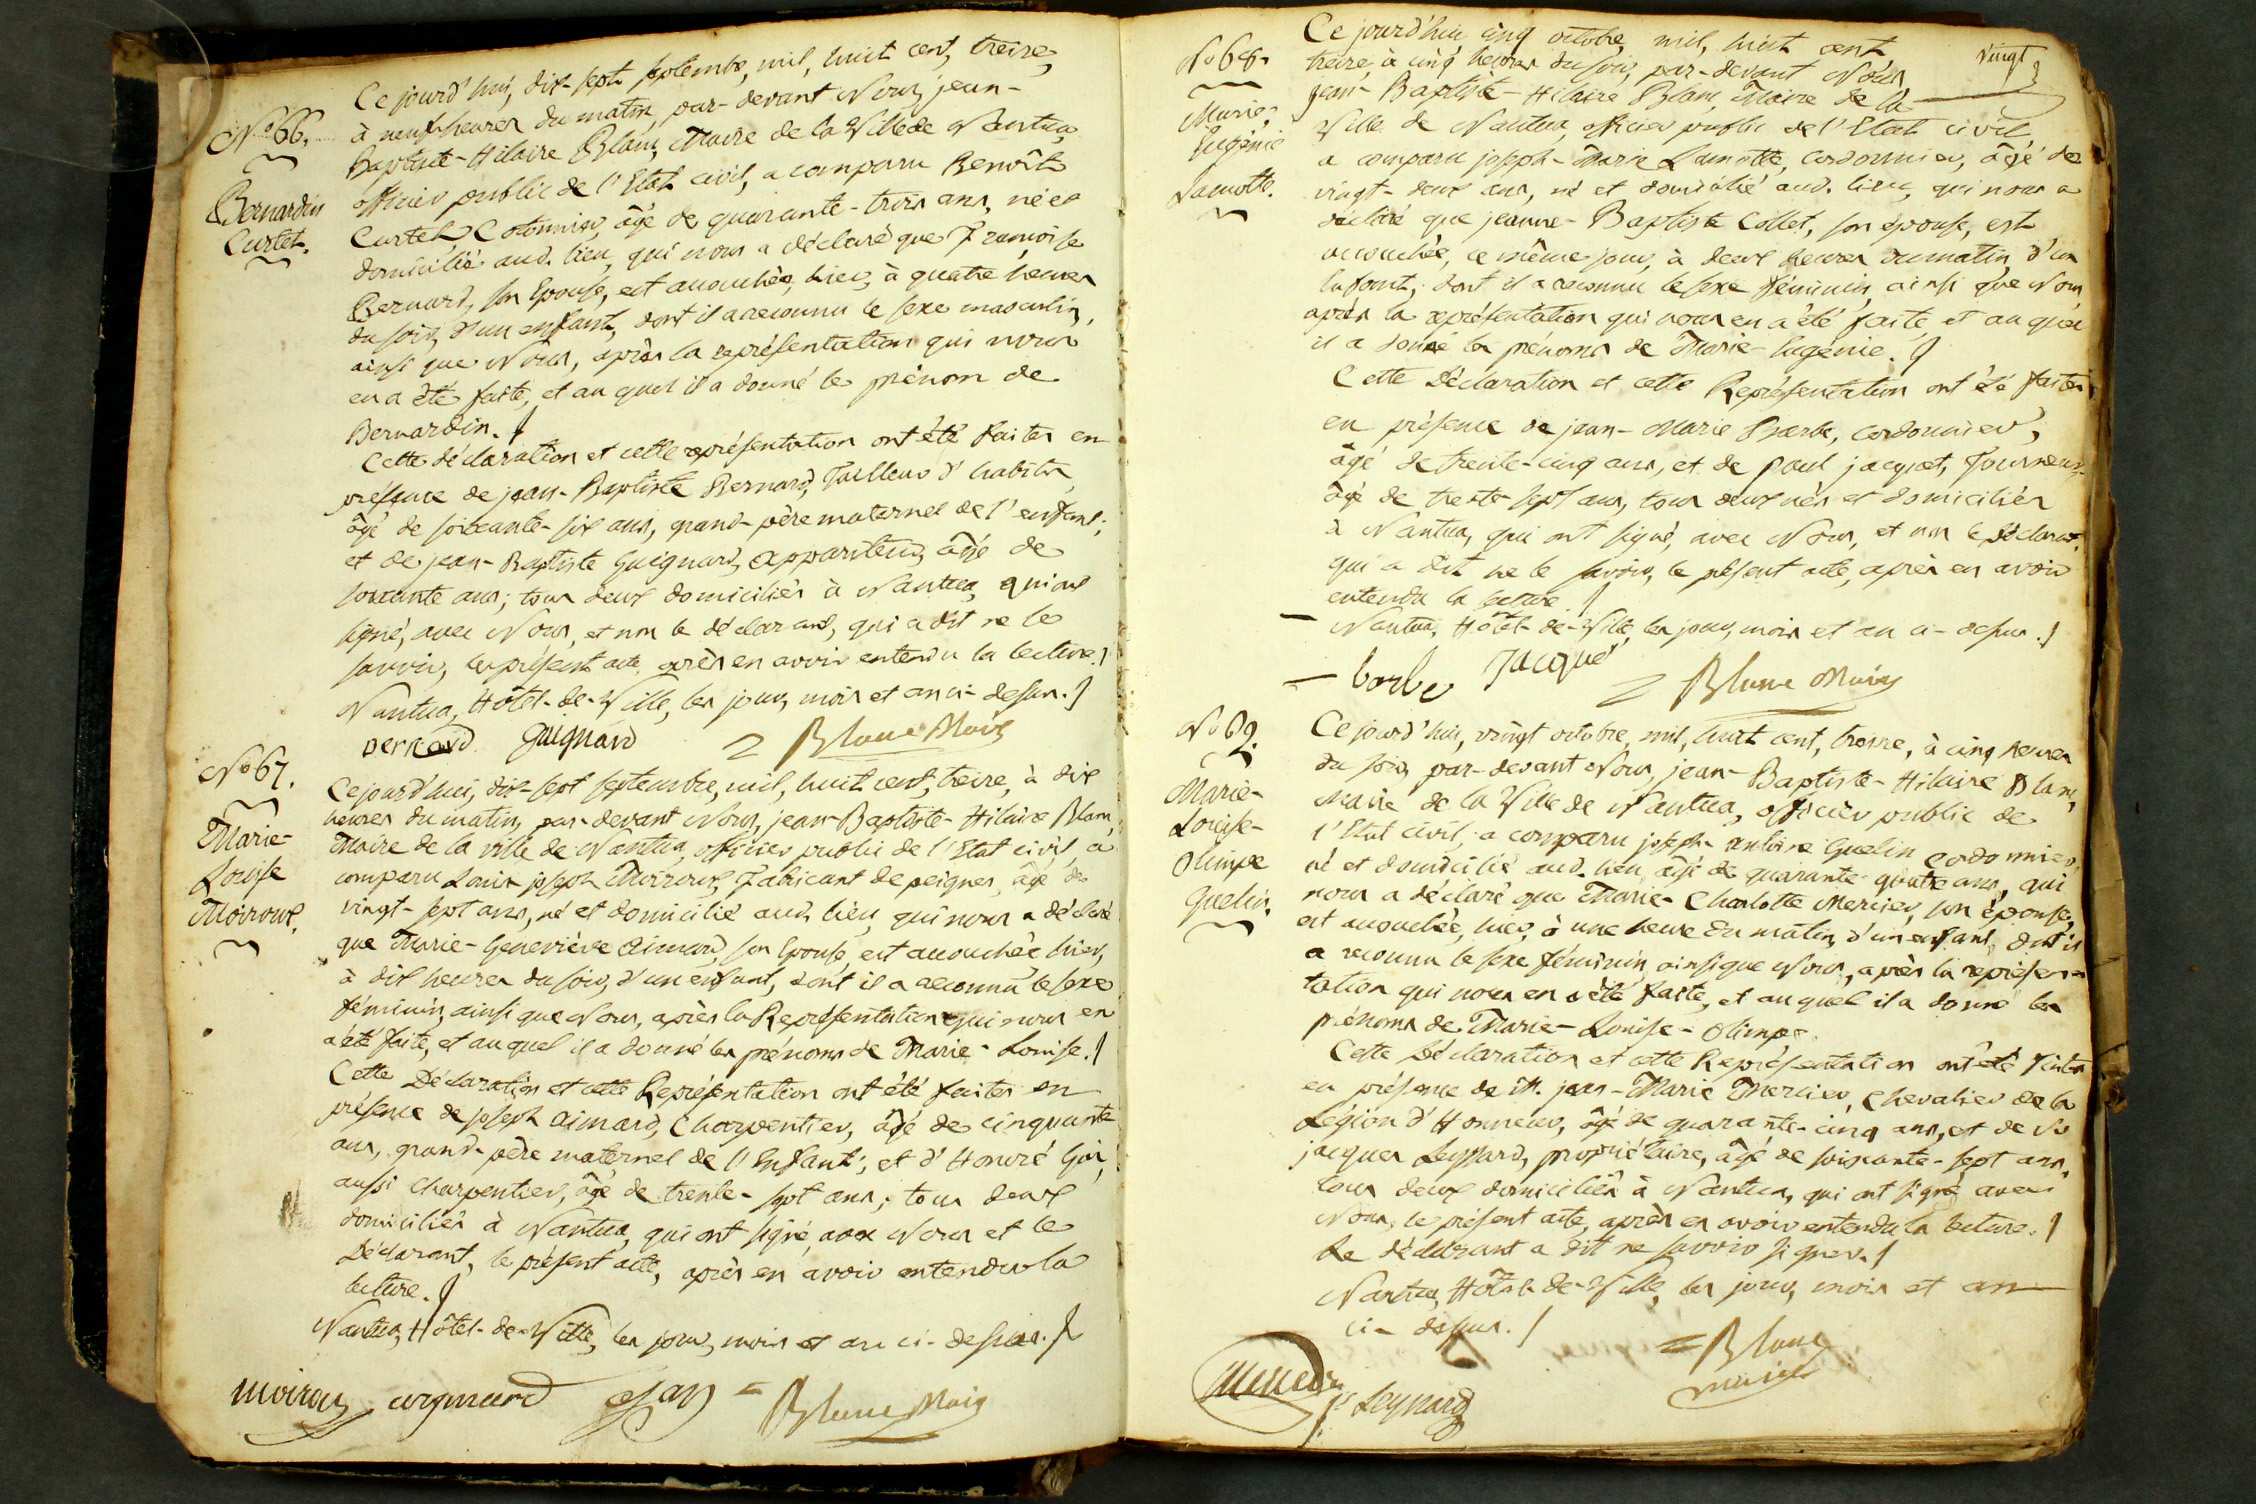 Ce jourd'hui, dix-sept septembre, mil, huit cent, treize,
à neuf heures du matin, par-devant Nous, jean-
Baptiste-Hilaire Blanc, Maire de la Ville de Nantua,
officier public de l'Etat civil, a comparu Benoît
Curtet, Cotonnier, âgé de quarante-trois ans, né et
domicilié aud. lieu, qui nous a déclaré que Françoise
Bernard, son Epouse, est accouchée, hier, à quatre heures
du soir, d'un enfant, dont il a reconnu le sexe masculin,
ainsi que Nous, après la représentation qui nous
en a été faite, et au quel il a donné le prénom de
Bernardin.
Cette déclaration et cette représentation ont été faites en
présence de jean-Baptiste Bernard, Tailleur d'habits,
âgé de soixante-six ans, grand-père maternel de l'enfant;
et de jean-Baptiste Guignard, appariteur, âgé de
soixante ans; tous deux domiciliés à Nantua, qui ont
signé, avec Nous, et non le déclarant, qui a dit ne le
savoir, le présent acte, après en avoir entendu la lecture.
Nantua, Hôtel-de-Ville, les jour, mois et an ci-dessus.
bernard Guignard Blanc Maire
N° 66.
Bernardin
Curtet.
N° 67.
Marie-
Louise
Moiroux.
Ce jourd'hui, dix-sept septembre, mil, huit cent, treize, à dix
heures du matin, par-devant Nous, jean-Baptiste-Hilaire Blanc,
Maire de la ville de Nantua, officier public de l'Etat civil, a
comparu Louis joseph Moiroux, Fabricant de peignes, âgé de
vingt-sept ans, né et domicilié aud. lieu, qui nous a déclaré
que Marie-Geneviève Aimard, son Epouse, est accouchée hier,
à dix heures du soir, d'un enfant, dont il a reconnu le sexe
féminin, ainsi que Nous, après la Représentation qui nous en
a été faite, et au quel il a donné les prénoms de Marie-Louise.
Cette Déclaration et cette Représentation ont été faites en
présence de joseph Aimard, Charpentier, âgé de cinquante
ans, grand-père maternel de l'Enfant; et d'Honoré
aussi charpentier, âgé de trente-sept ans; tous deux
domiciliés à Nantua, qui ont signé, avec Nous et le
Déclarant, le présent acte, après en avoir entendu la
lecture.
Nantua, Hôtel-de-Ville, les jour, mois et an ci-dessus.
moiroux Blanc Maire
vingt
N° 68.
Marie-
Eugénie
Lamotte.
Ce jourd'hui cinq octobre, mil, huit cent
treize, à cinq heures du soir, par-devant Nous
jean-Baptiste-Hilaire Blanc, Maire de la
Ville de Nantua, officier public de l'Etat civil
a comparu joseph-Marie Lamotte, cordonnier, âgé de
vingt-deux ans, né et domicilié aud. lieu, qui nous a
déclaré que jeanne-Baptiste Collet, son épouse, est
accouchée, ce même jour, à deux heures du matin, d'un
Enfant, dont il a reconnu le sexe féminin, ainsi que Nous
après la représentation qui nous en a été faite, et au quel
il a donné les prénoms de Marie-Eugénie.
Cette Déclaration et cette Représentation ont été faites,
en présence de jean-Marie Barbe, cordonnier,
âgé de trente-cinq ans, et de paul jacquet, Tourneur,
âgé de trente-sept ans, tous deux nés et domiciliés
à Nantua, qui ont signé, avec Nous, et non le Déclarant,
qui a dit ne le savoir, le présent acte, après en avoir
entendu la lecture.
Nantua, Hôtel-de-Ville, les jour, mois et an ci-dessus.
barbe Jacquet Blanc Maire
N° 69.
Marie-
Louise-
Olimpe
Guelin.
Ce jourd'hui, vingt octobre, mil, huit cent, treize, à cinq heures
du soir, par-devant Nous, jean-Baptiste-Hilaire Blanc,
Maire de la Ville de Nantua, officier public de
l'Etat civil, a comparu joseph antoine Guelin cordonnier,
né et domicilié aud. lieu, âgé de quarante-quatre ans, qui
nous a déclaré que Marie-Charlotte Mercier, son épouse,
est accouchée, hier, à une heure du matin, d'un enfant, dont il
a reconnu le sexe féminin, ainsi que Nous, après la représen-
tation qui nous en a été faite, et au quel il a donné les
prénoms de Marie-Louise-Olimpe.
Cette Déclaration et cette Représentation ont été faites
en présence de M. jean-Marie Mercier, Chevalier de la
Légion d'Honneur, âgé de quarante-cinq ans, et de Sr
jacques Leyssard, propriétaire, âgé de soixante-sept ans,
tous deux domiciliés à Nantua, qui ont signé avec
Nous, le présent acte, après en avoir entendu la lecture.
Le déclarant a dit ne savoir signer.
Nantua, Hôtel-de-Ville, les jour, mois et an
ci-dessus.
Blanc
maire
Mercier